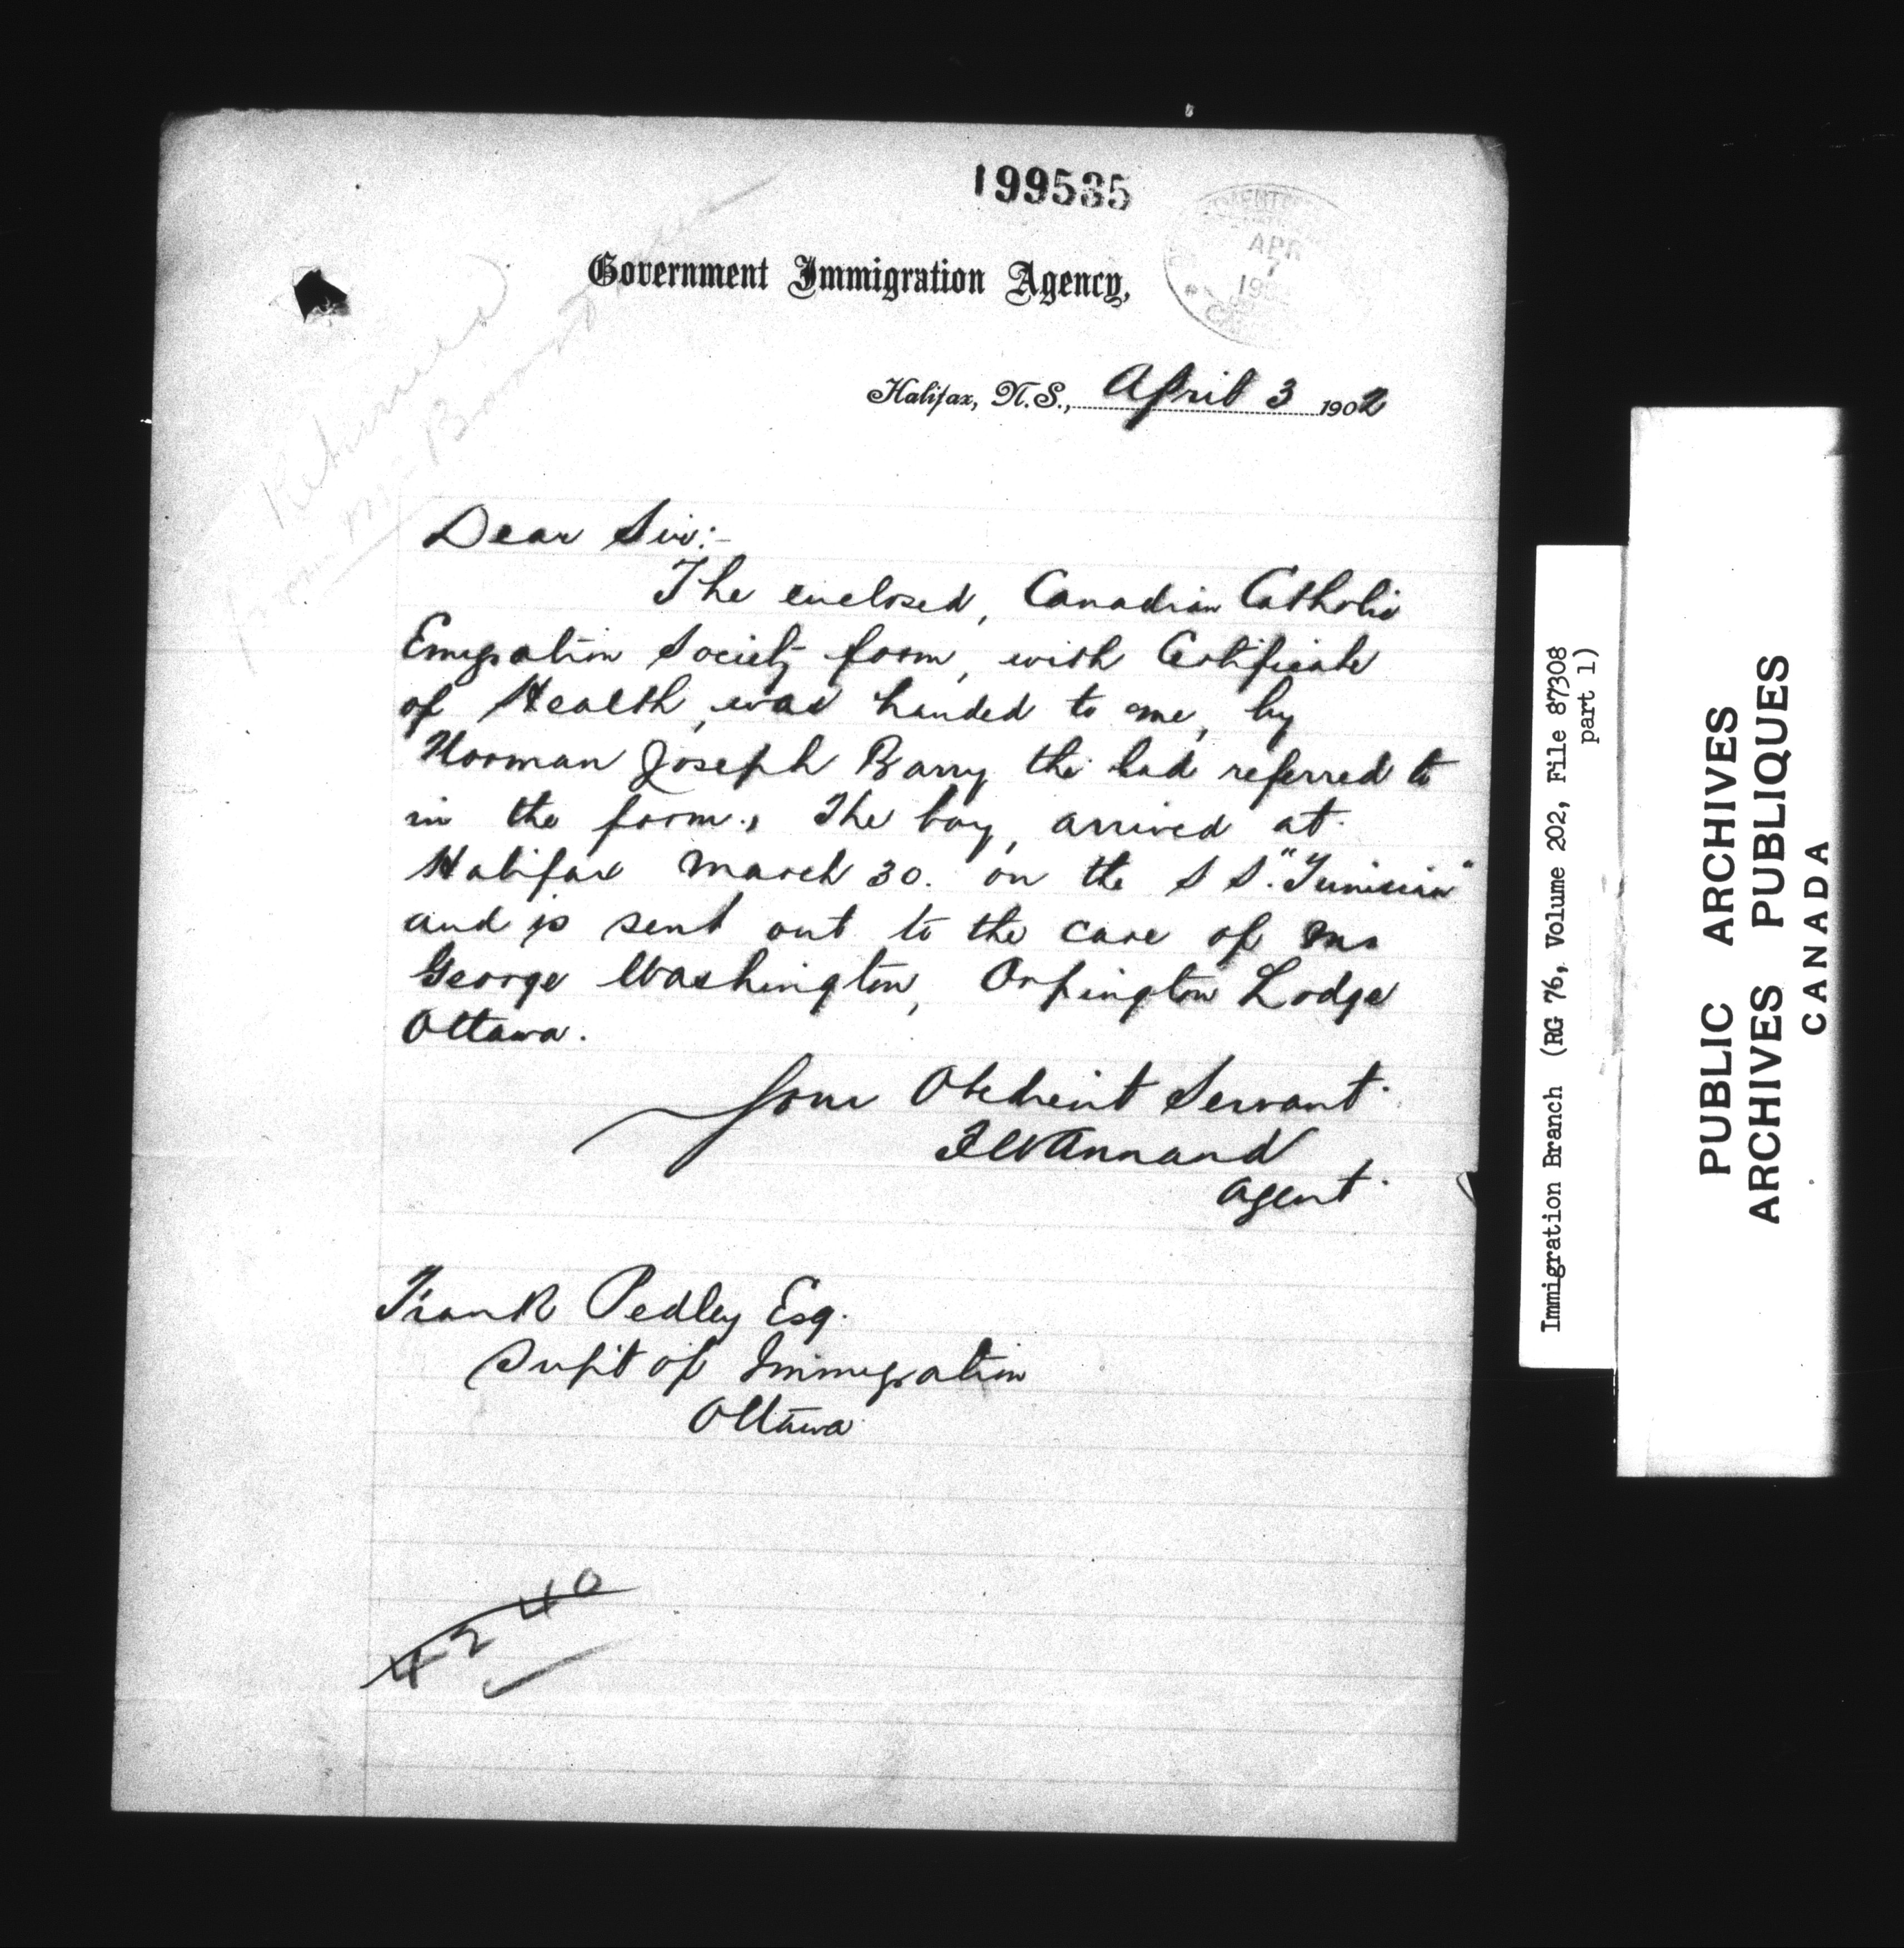 199535
APR
7
Government Immigration Agency,
Halifax, N.S., April 3 1902
Returned
from Mr
Dear Sir:-
The enclosed, Canadian Catholic
Emigration Society form, with Certificate
of Health, was handed to me, by
Norman Joseph Barry the lad referred to
in the form. The boy, arrived at
Halifax March 30. on the S S. "Tunisian"
and is sent out to the care of Mr
George Washington, Orpington Lodge
Ottawa.
Your Obedient Servant
F W Annand
Agent
Frank Pedley Esq.
Supt of Immigration
Ottawa
42 40
Immigration Branch (RG 76, Volume 202, File 87308
part 1)
PUBLIC ARCHIVES
ARCHIVES PUBLIQUES
CANADA